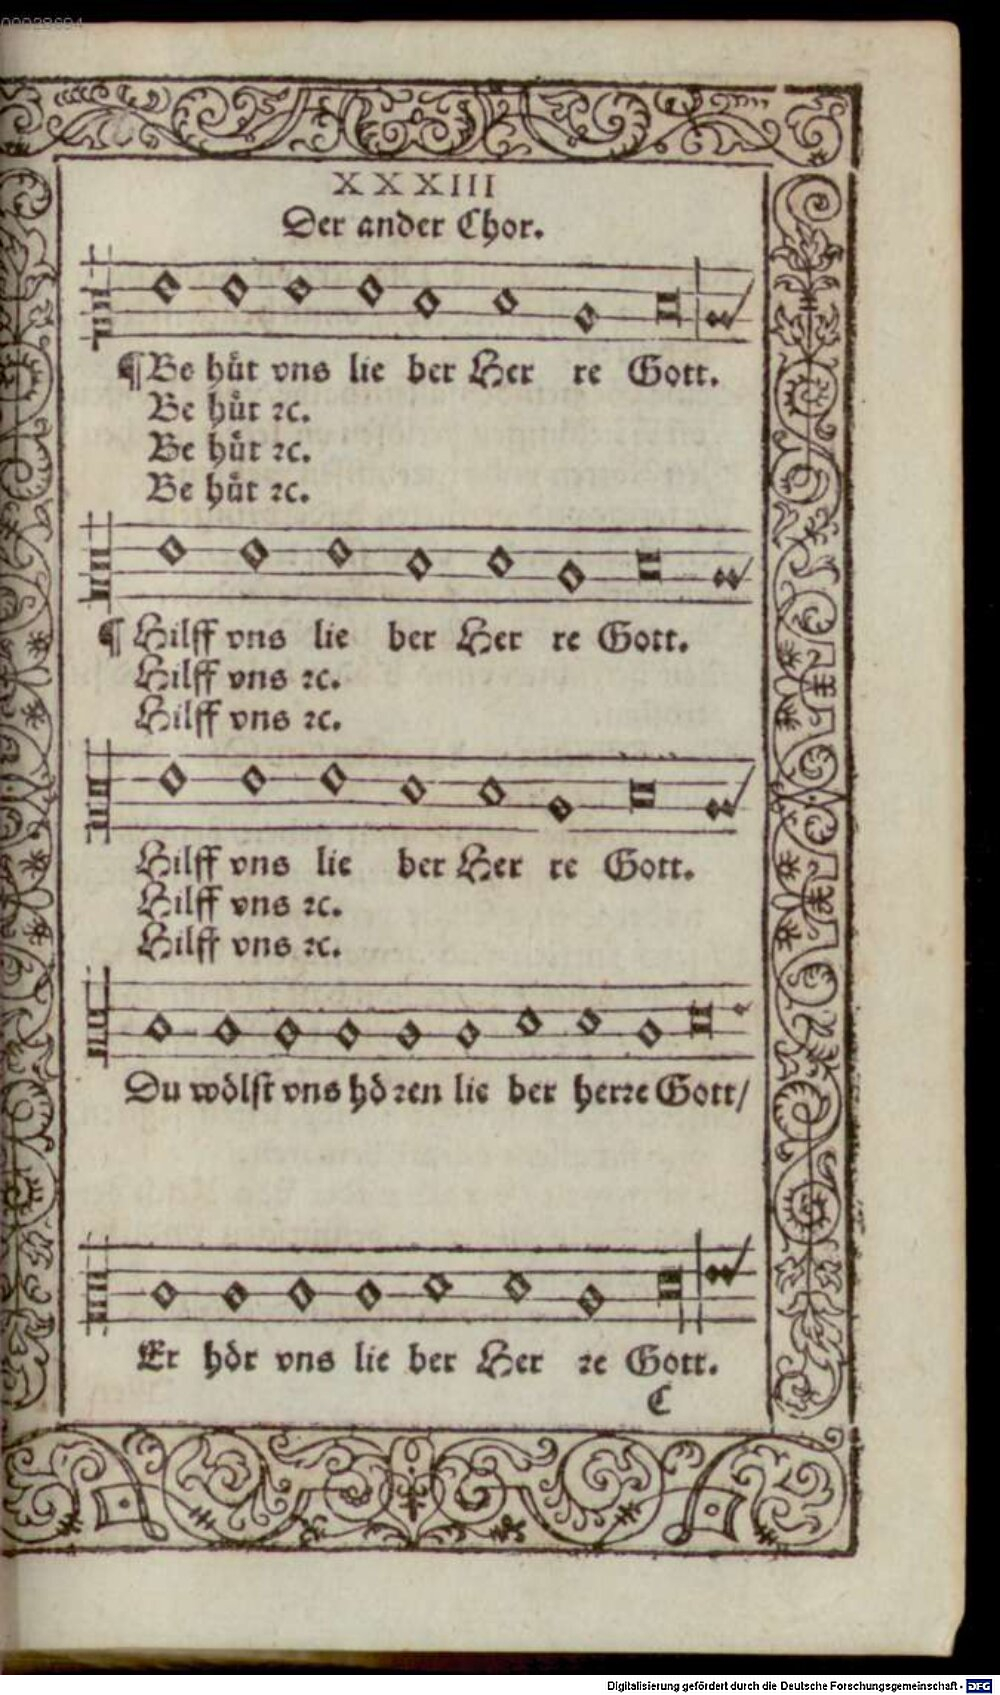 00028694
XXXIII
Der ander Chor.
¶ Be huͤt vns lie ber Her re Gott.
Be huͤt ꝛc.
Be huͤt ꝛc.
Be huͤt ꝛc.
¶ Hilff vns lie ber Her re Gott.
Hilff vns ꝛc.
Hilff vns ꝛc.
Hilff vns lie ber Her re Gott.
Hilff vns ꝛc.
Hilff vns ꝛc.
Du woͤlſt vns hoͤ ꝛen lie ber herꝛe Gott/
Er hoͤr vns lie ber Her ꝛe Gott.
C
Digitalisierung gefördert durch die Deutsche Forschungsgemeinschaft - DFG